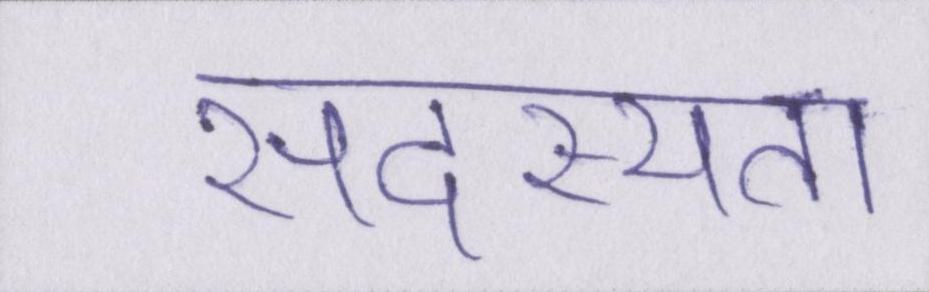 सदस्यता